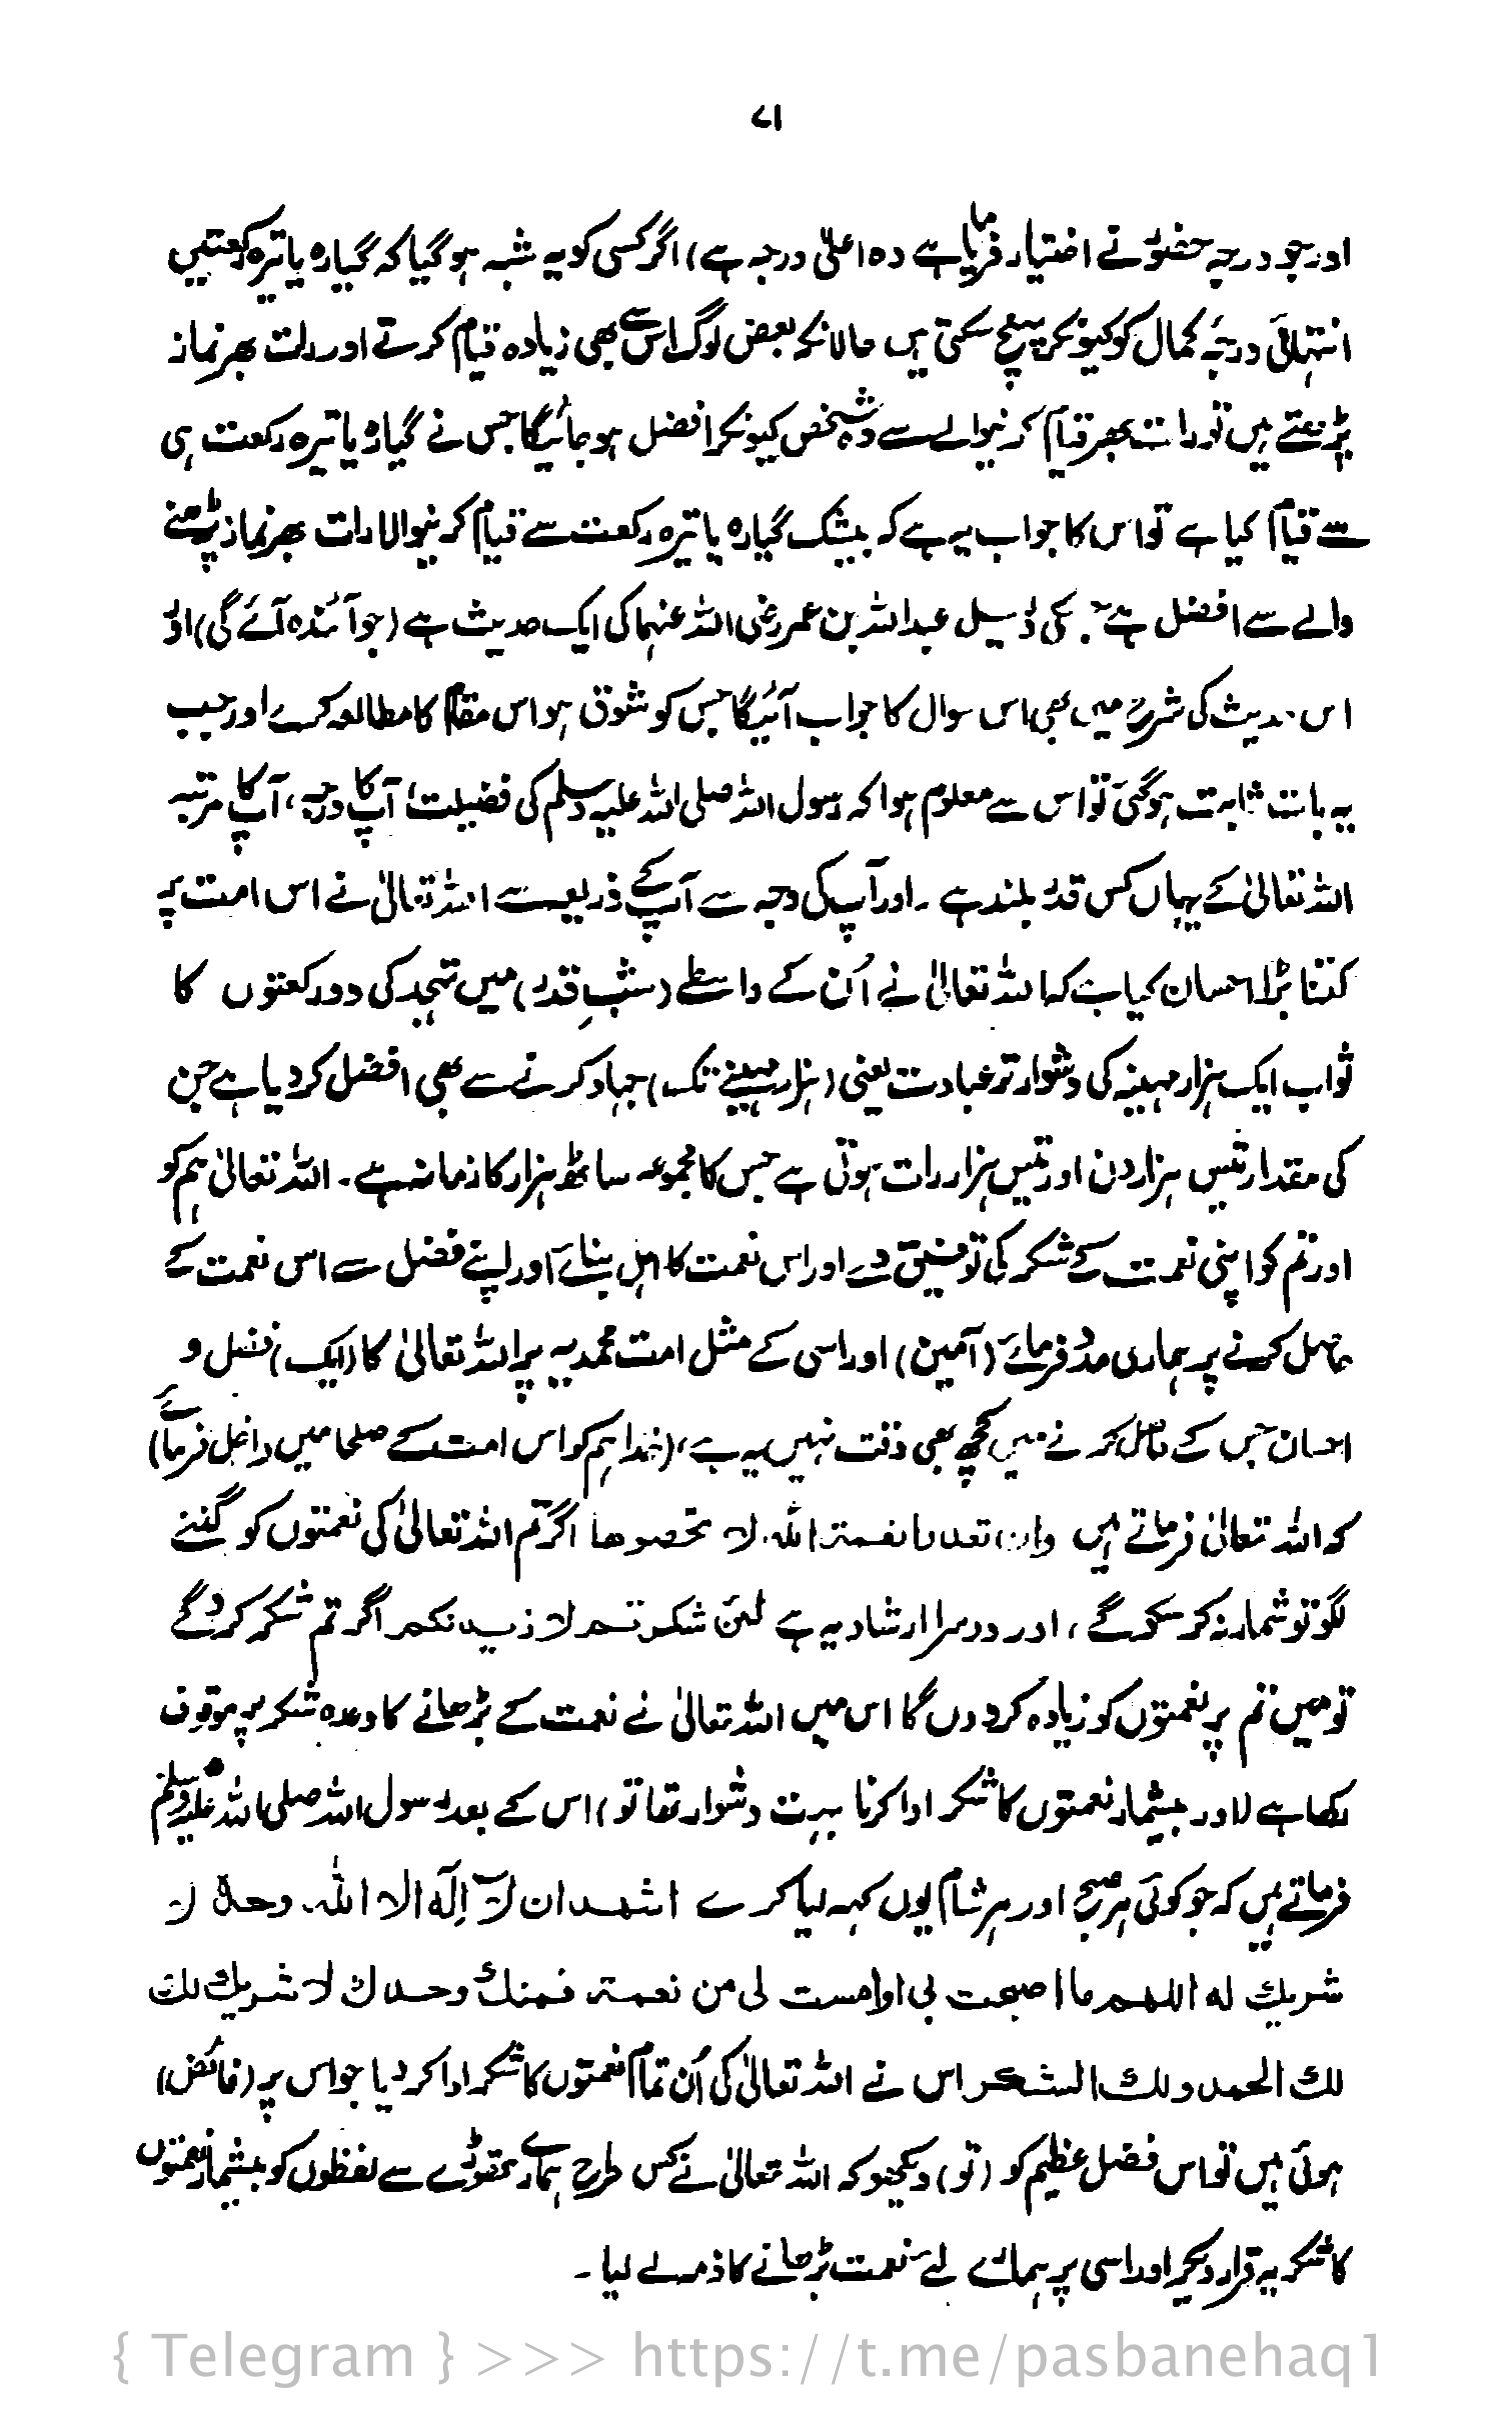 ۷۱
اور جو درجہ حضورؐ نے اختیار فرمایا ہے وہ اعلیٰ درجہ ہے) اگر کسی کو یہ شبہ ہو گیا کہ گیارہ یا تیرہ رکعتیں
انتہائی درجۂ کمال کو کیونکر پہنچ سکتی ہیں حالانکہ بعض لوگ اس سے بھی زیادہ قیام کرتے اور رات بھر نماز
پڑھتے ہیں تو رات بھر قیام کرنیوالے سے وہ شخص کیونکر افضل ہو جائیگا جس نے گیارہ یا تیرہ رکعت ہی
سے قیام کیا ہے تو اس کا جواب یہ ہے کہ بیشک گیارہ یا تیرہ رکعت سے قیام کرنیوالا رات بھر نماز پڑھنے
والے سے افضل ہے جس کی دلیل عبداللہ بن عمر رضی اللہ عنہما کی ایک حدیث ہے (جو آئندہ آئے گی) اور
اس حدیث کی شرح میں بھی اس سوال کا جواب آئیگا جس کو شوق ہو اس مقام کا مطالعہ کرے اور جب
یہ بات ثابت ہو گئی تو اس سے معلوم ہوا کہ رسول اللہ صلی اللہ علیہ وسلم کی فضیلت، آپ کا درجہ، آپ کا مرتبہ
اللہ تعالیٰ کے یہاں کس قدر بلند ہے ۔ اور آپ کی وجہ سے آپ کے ذریعہ سے اللہ تعالیٰ نے اس امت پر
کتنا بڑا احسان کیا ہے کہ اللہ تعالیٰ نے اُن کے واسطے (شبِ قدر) میں تہجد کی دو رکعتوں کا
ثواب ایک ہزار مہینہ کی دشوار تر عبادت یعنی (ہزار مہینے تک) جہاد کرنے سے بھی افضل کر دیا ہے جن
کی مقدار تیس ہزار دن اور تیس ہزار رات ہوتی ہے جس کا مجموعہ ساٹھ ہزار کا زمانہ ہے ۔ اللہ تعالیٰ ہم کو
اور تم کو اپنی نعمت کے شکر کی توفیق دے اور اس نعمت کا اہل بنائے اور اپنے فضل سے اس نعمت کے
حاصل کرنے پر ہماری مدد فرمائے (آمین) اور اسی کے مثل امت محمدیہ پر اللہ تعالیٰ کا (ایک) فضل و
احسان جس کے حاصل کرنے میں کچھ بھی دقت نہیں یہ ہے، (خدا ہم کو اس امت کے صلحا میں داخل فرمائے)
کہ اللہ تعالیٰ فرماتے ہیں وان تعدوا نعمۃ اللہ لا تحصوھا اگر تم اللہ تعالیٰ کی نعمتوں کو گننے
لگو تو شمار نہ کر سکو گے ، اور دوسرا ارشاد یہ ہے لئن شکرتم لازیدنکم اگر تم شکر کرو گے
تو میں تم پر نعمتوں کو زیادہ کردوں گا اس میں اللہ تعالیٰ نے نعمت کے بڑھانے کا وعدہ شکر پر موقوف
رکھا ہے (اور بیشمار نعمتوں کا شکر ادا کرنا بہت دشوار تھا تو) اس کے بعد رسول اللہ صلی اللہ علیہ وسلم
فرماتے ہیں کہ جو کوئی ہر صبح اور ہر شام یوں کہہ لیا کرے اشھد ان لآ اِلٰہ الا اللہ وحدہ لا
شریك له اللهم ما اصبحت بی او امست لی من نعمة فمنك وحدك لا شریك لك
لك الحمد ولك الشکر اس نے اللہ تعالیٰ کی اُن تمام نعمتوں کا شکر ادا کر دیا جو اس پر (فائض)
ہوئی ہیں تو اس فضل عظیم کو (تو) دیکھو کہ اللہ تعالیٰ نے کس طرح ہمارے تھوڑے سے لفظوں کو بیشمار نعمتوں
کا شکریہ قرار دیکر اور اسی پر ہمارے لئے نعمت بڑھانے کا ذمہ لے لیا ۔
{ Telegram } >>> https://t.me/pasbanehaq1